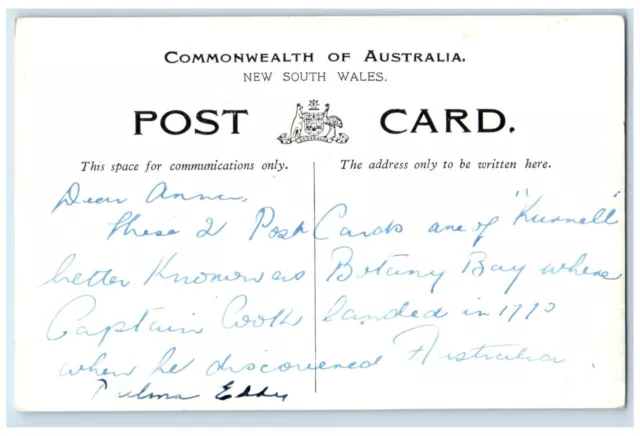 COMMONWEALTH OF AUSTRALIA.
NEW SOUTH WALES.
POST CARD.
This space for communications only.
The address only to be written here.
Dear Anna,
these 2 Post Cards are of "Kurnell"
better Known as Botany Bay where
Captain Cook landed in 1770
when he discovered Australia.
Eddy